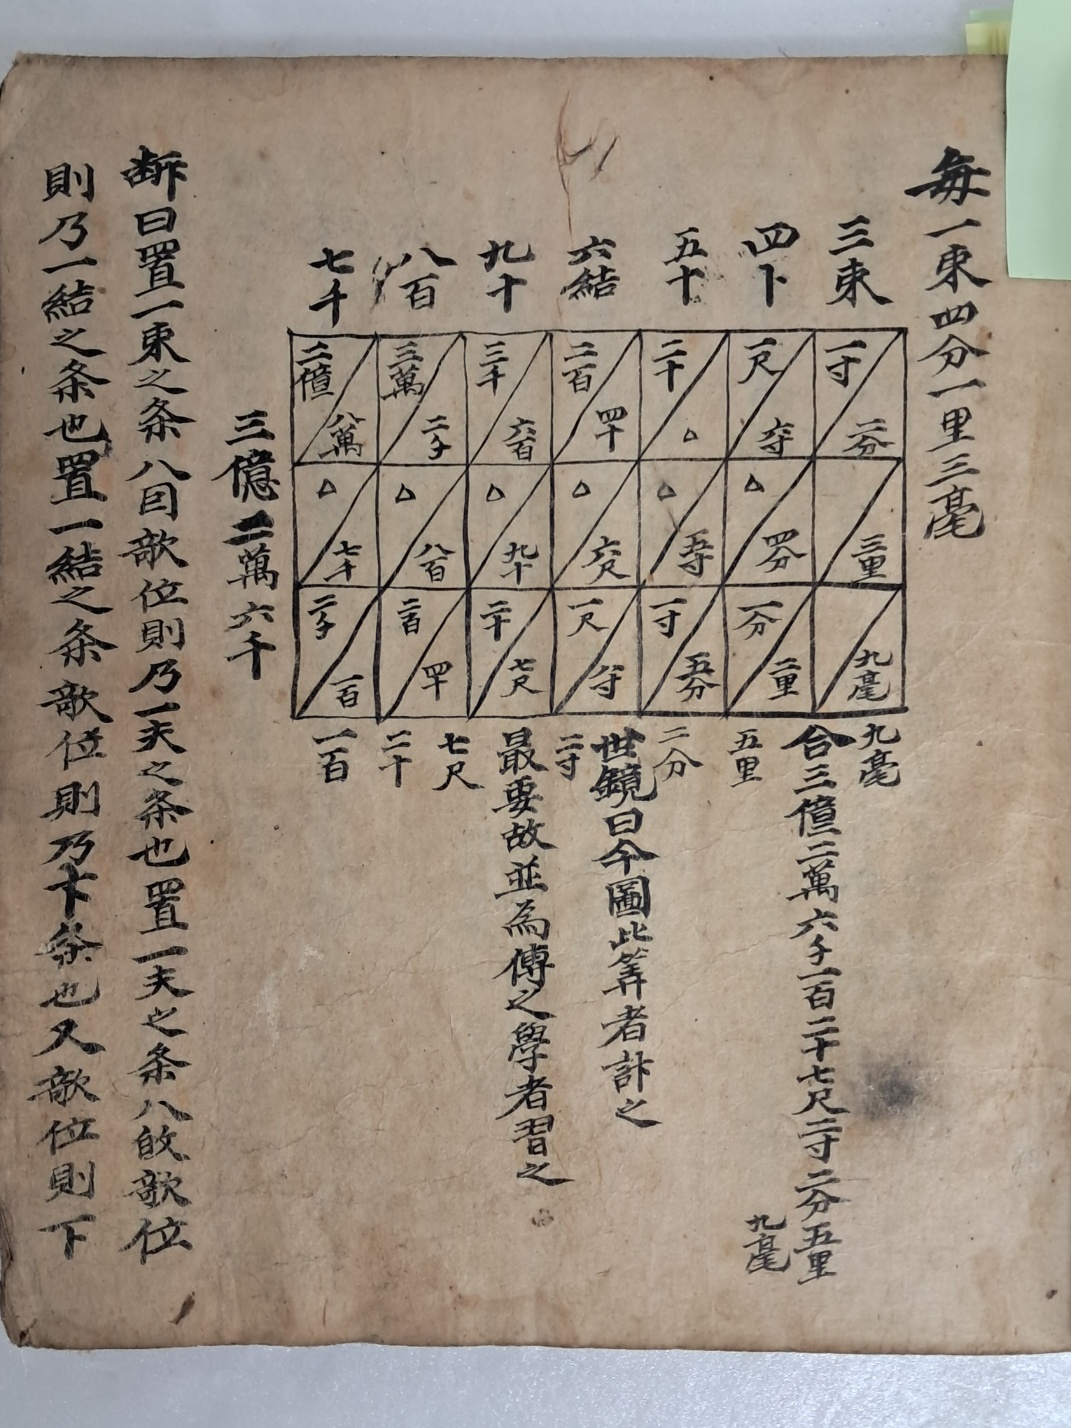 每一束四分一里三毫
三束
四卜
五十
六結
九十
八百
七千
一寸 二分
一尺 六寸
二十 △
二百 四十
三千 六百
三萬 二千
二億 八萬
三里
△ 四分
△ 五寸
△ 六尺
△ 九十
△ 八百
△ 七千
九毫
一分 二里
一寸 五分
一尺 八寸
二十 七尺
二百 四十
二千 一百
九毫
合三億二萬六千一百二十七尺二寸二分五里
九毫
五里
二分
世鏡曰今圖此筭者計之
二寸
最要故並為傳之學者習之
七尺
二十
一百
三億二萬六千
斷曰置一束之条八因歌位則乃一夫之条也置一夫之条八the歌位
則乃一結之条也置一結之条歌位則乃卞条也又歌位則下